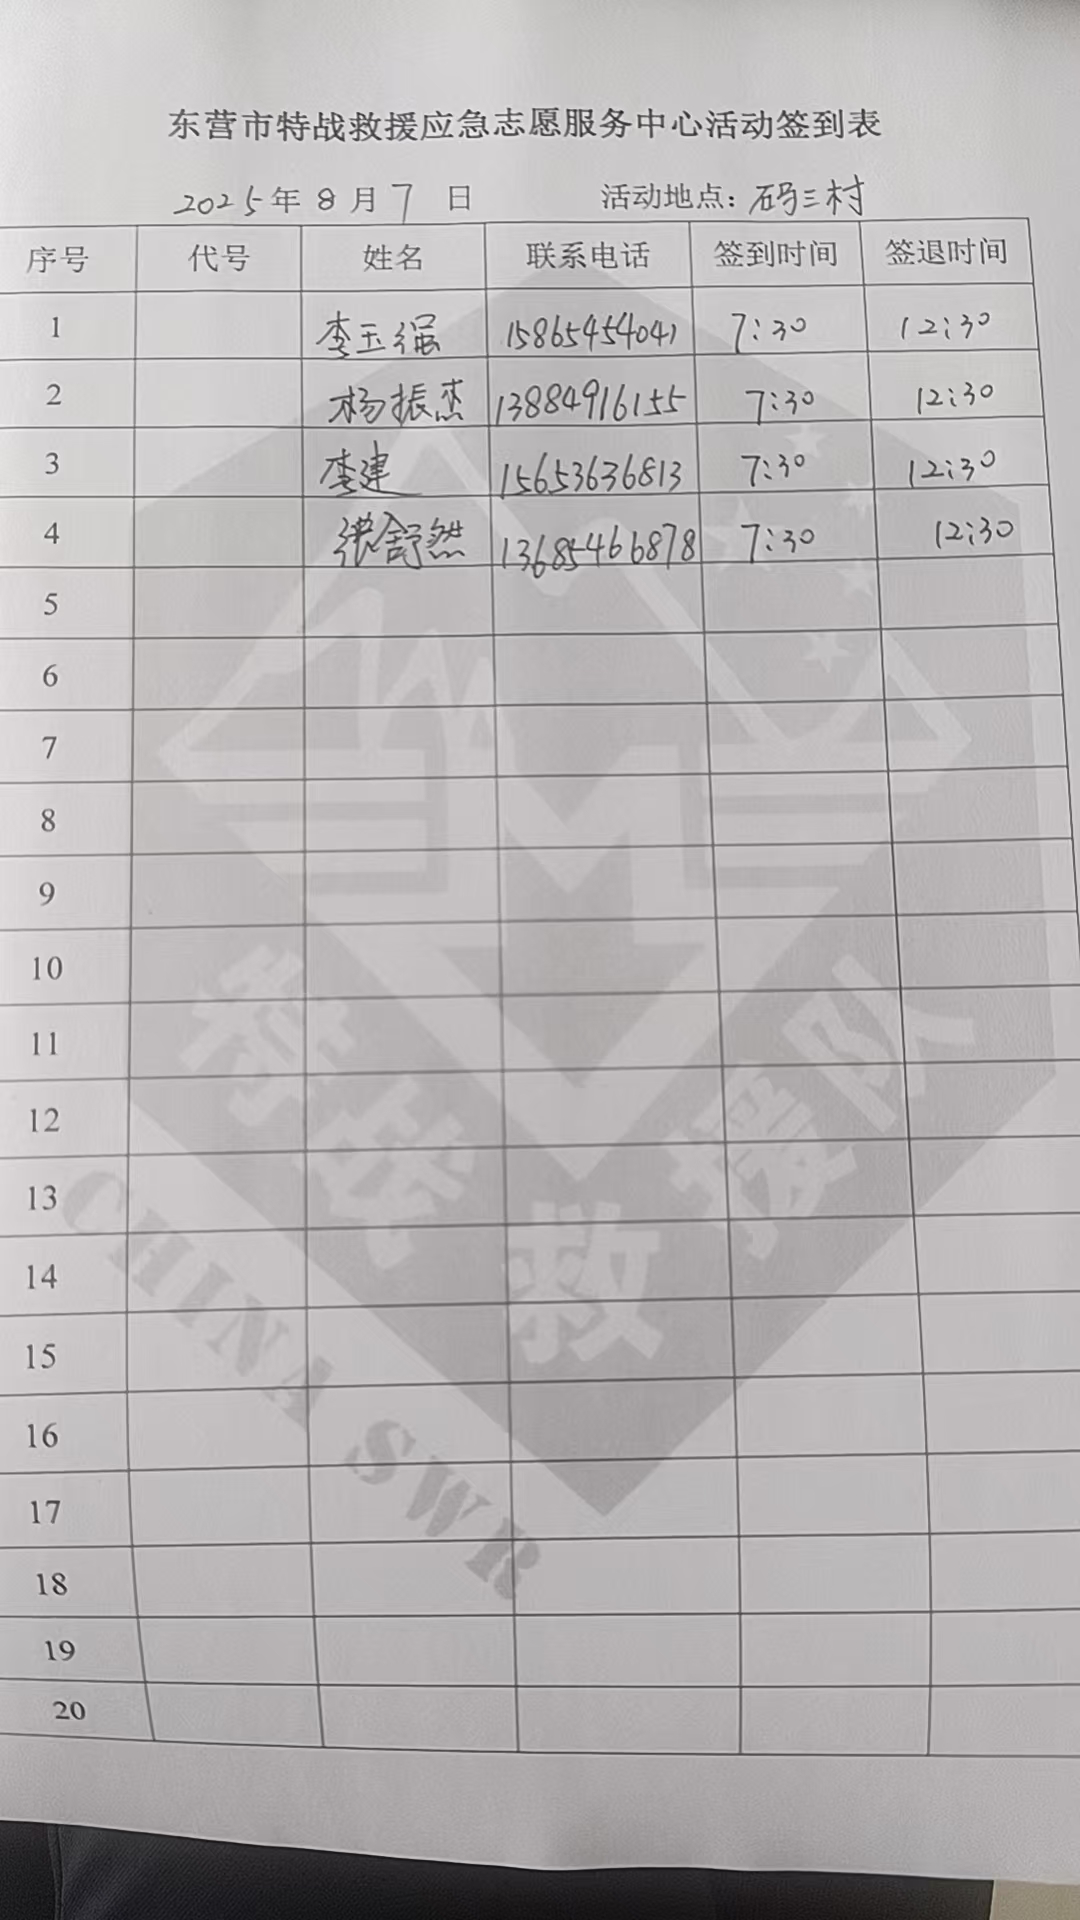 东营市特战救援应急志愿服务中心活动签到表
2025年8月7日 活动地点：码三村
序号 代号 姓名 联系电话 签到时间 签退时间
1 李玉强 15865454041 7:30 12:30
2 杨振杰 13884916155 7:30 12:30
3 李建 15653636813 7:30 12:30
4 张舒然 13685466878 7:30 12:30
5
6
7
8
9
10
11
12
13
14
15
16
17
18
19
20
特战救援队
CHINA SWR